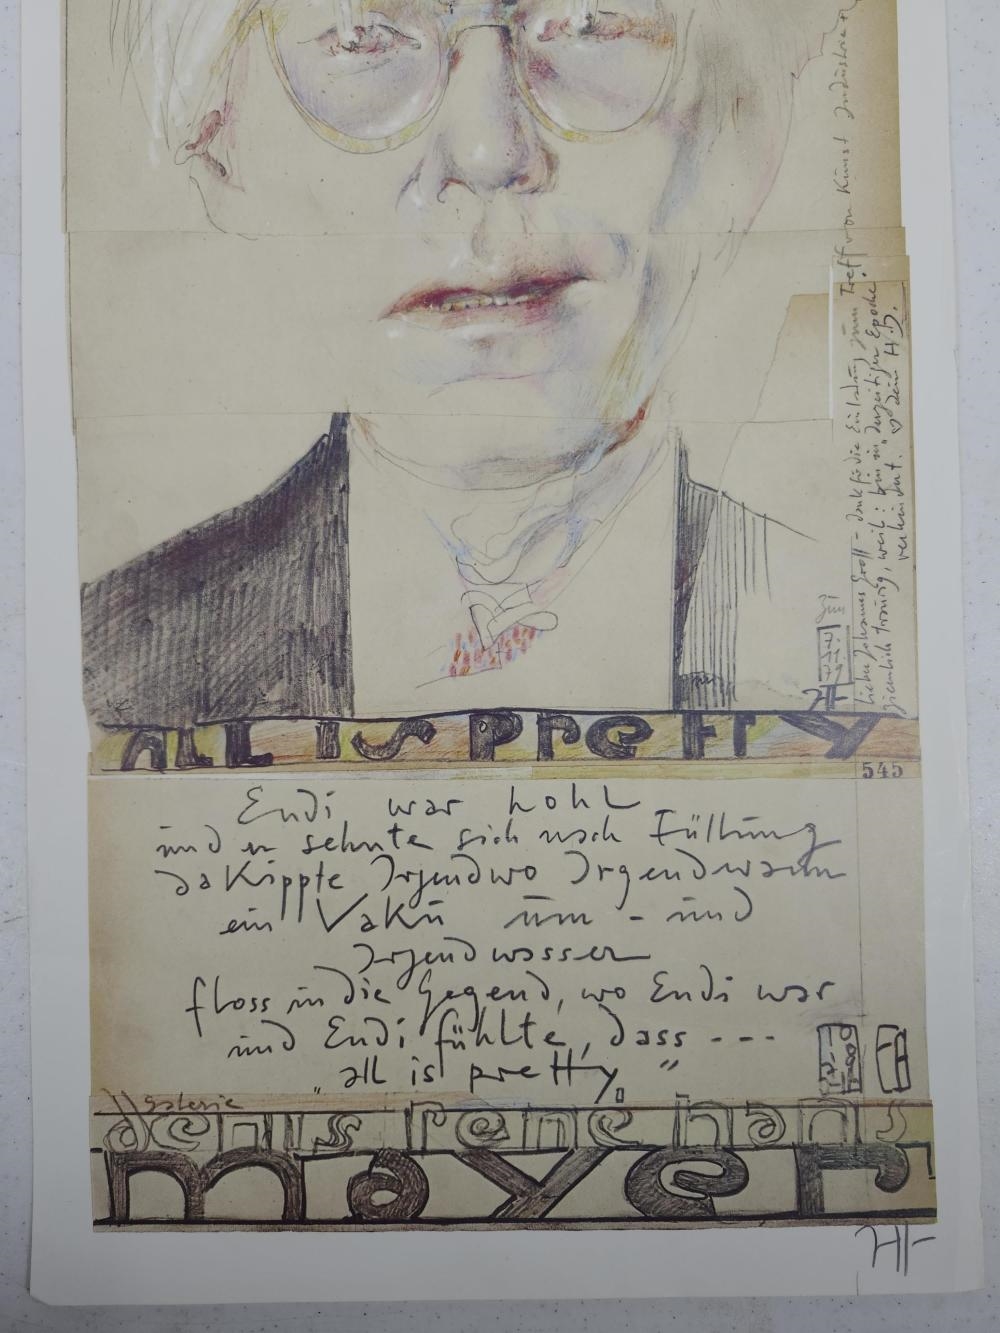 ALL IS PreTTY
545
Endi war hohl
und er sehnte sich nach Füllung
da kippte Irgendwo Irgendwann
ein Vakuum - und
Irgendwasser
floss in die Gegend, wo Endi war
und Endi fühlte, dass ---
"all is pretty"
galerie
denis rené hans
mayer
Lieber Johannes Groll - dank für die Einladung zum Treff von Kunst Industrie
ziemlich traurig, weil: bin in "derzeitiger Epoche"
verhindert. ♡ dein H.